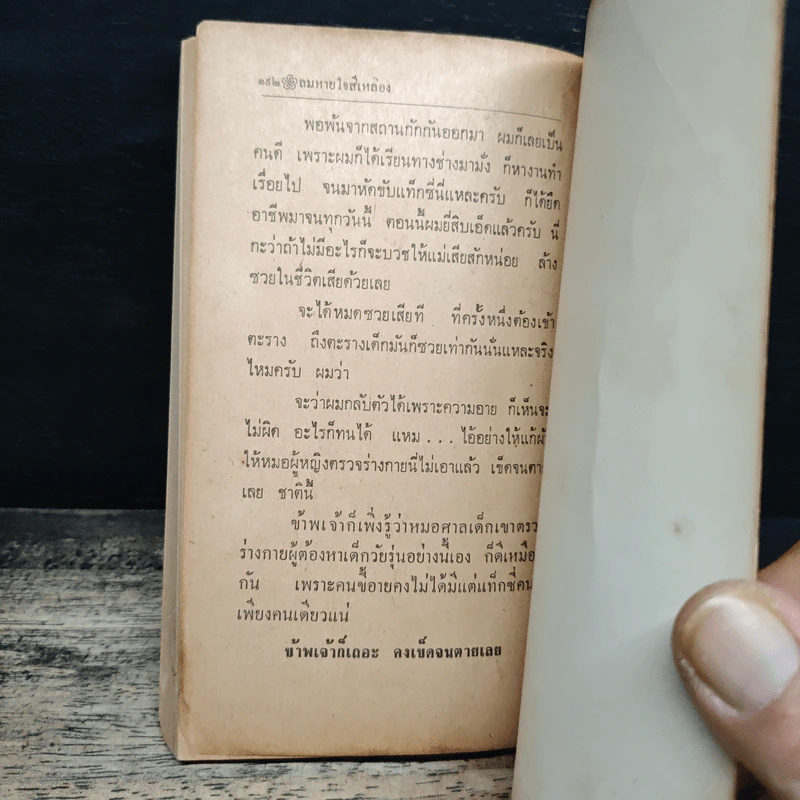 ๑๙๒ ลมหายใจสีเหลือง
พอพ้นจากสถานกักกันออกมา ผมก็เลยเป็น
คนดี เพราะผมก็ได้เรียนทางช่างมามั่ง ก็หางานทำ
เรื่อยไป จนมาหัดขับแท็กซี่นี่แหละครับ ก็ได้ยึด
อาชีพมาจนทุกวันนี้ ตอนนี้ผมยี่สิบเอ็ดแล้วครับ นี่
กะว่าถ้าไม่มีอะไรก็จะบวชให้แม่เสียสักหน่อย ล้าง
ซวยในชีวิตเสียด้วยเลย
จะได้หมดซวยเสียที ที่ครั้งหนึ่งต้องเข้า
ตะราง ถึงตะรางเด็กมันก็ซวยเท่ากันนั่นแหละจริง
ไหมครับ ผมว่า
จะว่าผมกลับตัวได้เพราะความอาย ก็เห็นจะ
ไม่ผิด อะไรก็ทนได้ แหม . . . ไอ้อย่างให้แก้ผ้
ให้หมอผู้หญิงตรวจร่างกายนี่ไม่เอาแล้ว เข็ดจนตา
เลย ชาตินี้
ข้าพเจ้าก็เพิ่งรู้ว่าหมอศาลเด็กเขาตรว
ร่างกายผู้ต้องหาเด็กวัยรุ่นอย่างนี้เอง ก็ดีเหมือ
กัน เพราะคนขี้อายคงไม่ได้มีแต่แท็กซี่คน
เพียงคนเดียวแน่
ข้าพเจ้าก็เถอะ คงเข็ดจนตายเลย